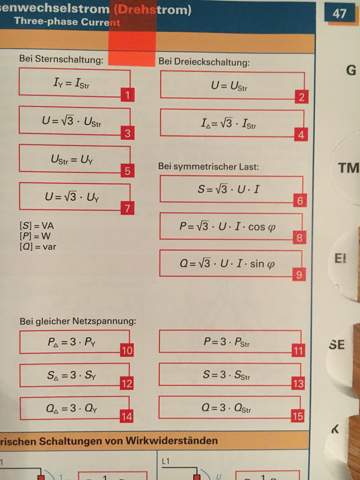 senwechselstrom (Drehstrom)
Three-phase Current
47
Bei Sternschaltung:
I_Y = I_Str
1
U = √3 · U_Str
3
U_Str = U_Y
5
U = √3 · U_Y
7
[S] = VA
[P] = W
[Q] = var
Bei Dreieckschaltung:
U = U_Str
2
I_△ = √3 · I_Str
4
Bei symmetrischer Last:
S = √3 · U · I
6
P = √3 · U · I · cos φ
8
Q = √3 · U · I · sin φ
9
Bei gleicher Netzspannung:
P_△ = 3 · P_Y
10
P = 3 · P_Str
11
S_△ = 3 · S_Y
12
S = 3 · S_Str
13
Q_△ = 3 · Q_Y
14
Q = 3 · Q_Str
15
rischen Schaltungen von Wirkwiderständen
L1
G
TM
SE
K